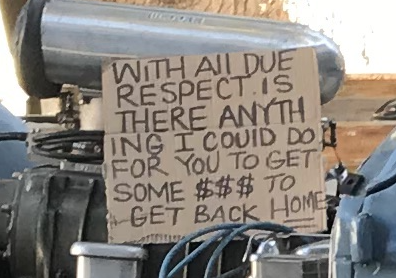 WITH All DUE
RESPECT IS
THERE ANYTH
ING I COUlD DO
FOR YOU TO GET
SOME $$$ TO
GET BACK HOME